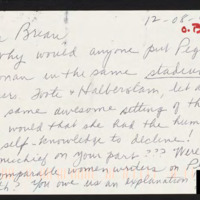 12-08-
O. B
Brian
why would anyone put Peg
in the same stadium
Foote & Halberstam, let a
same awesome sitting of th
would that she had the hum
self-knowledge to decline!
mischief on your part ??? Were
comparable women writers on P
You owe us an explanation